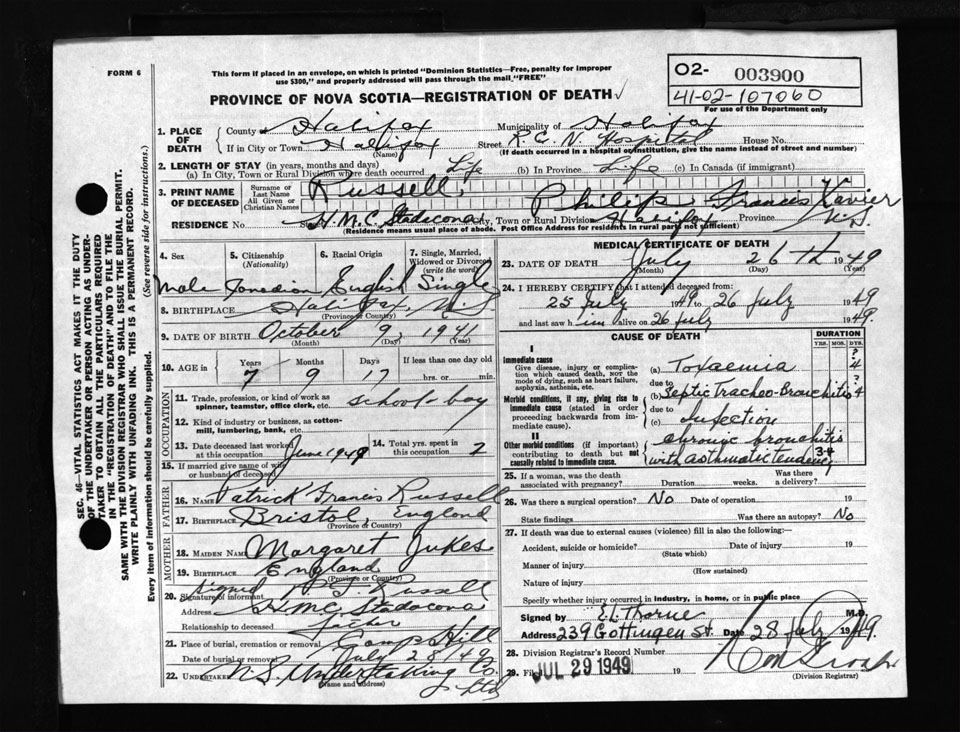 FORM 6
This form if placed in an envelope, on which is printed "Dominion Statistics—Free, penalty for improper
use $300," and properly addressed will pass through the mail "FREE"
O2- 003900
41-02-107060
For use of the Department only
PROVINCE OF NOVA SCOTIA—REGISTRATION OF DEATH ✓
1. PLACE OF DEATH
County Halifax Municipality of Halifax
If in City or Town Halifax Street R.C.N. Hospital House No.
(Name) (If death occurred in a hospital or institution, give the name instead of street and number)
2. LENGTH OF STAY (in years, months and days)
(a) In City, Town or Rural Division where death occurred Life (b) In Province Life (c) In Canada (if immigrant)
3. PRINT NAME OF DECEASED
Surname or Last Name Russell
All Given or Christian Names Philip Francis Xavier
RESIDENCE No. H.M.C. Stadacona City, Town or Rural Division Halifax Province N.S.
(Residence means usual place of abode. Post Office Address for residents in rural parts not sufficient)
4. Sex
5. Citizenship
(Nationality)
6. Racial Origin
7. Single, Married, Widowed or Divorced
(write the word)
Male Canadian English Single
8. BIRTHPLACE Halifax, N.S.
(Province or Country)
9. DATE OF BIRTH October 9, 1941
(Month) (Day) (Year)
10. AGE in Years Months Days If less than one day old
7 9 17 hrs. or min.
OCCUPATION
11. Trade, profession, or kind of work as
spinner, teamster, office clerk, etc. school boy
12. Kind of industry or business, as cotton-
mill, lumbering, bank, etc.
13. Date deceased last worked at this occupation June 1949 14. Total yrs. spent in this occupation 2
15. If married give name of wife or husband of deceased
FATHER
16. NAME Patrick Francis Russell
17. BIRTHPLACE Bristol, England
(Province or Country)
MOTHER
18. MAIDEN NAME Margaret Jukes
19. BIRTHPLACE England
(Province or Country)
20. Signature of informant Signed P. F. Russell
Address H.M.C. Stadacona
Relationship to deceased father
21. Place of burial, cremation or removal Camp Hill
Date of burial or removal July 28, 49
22. UNDERTAKER N.S. Undertaking Co. Ltd
(Name and address)
MEDICAL CERTIFICATE OF DEATH
23. DATE OF DEATH July 26th 1949
(Month) (Day) (Year)
24. I HEREBY CERTIFY that I attended deceased from:
25 July 1949 to 26 July 1949
and last saw him alive on 26 July 1949.
CAUSE OF DEATH
DURATION
YRS. MOS. DYS.
I
Immediate cause
Give disease, injury or complication which caused death, not the mode of dying, such as heart failure, asphyxia, asthenia, etc.
(a) Toxaemia ? 4
due to
Morbid conditions, if any, giving rise to immediate cause (stated in order proceeding backwards from immediate cause).
(b) Septic Tracheo-Bronchitis ? 4
due to
(c) Infection
II
Other morbid conditions (if important) contributing to death but not causally related to immediate cause.
chronic bronchitis
with asthmatic tendency 3-4
25. If a woman, was the death associated with pregnancy? Duration weeks. Was there a delivery?
26. Was there a surgical operation? No Date of operation 19
State findings Was there an autopsy? No
27. If death was due to external causes (violence) fill in also the following:—
Accident, suicide or homicide? Date of injury 19
(State which)
Manner of injury
(How sustained)
Nature of injury
Specify whether injury occurred in industry, in home, or in public place
Signed by E L Thorne M.D.
Address 239 Gottingen St. Date 28 July 1949.
28. Division Registrar's Record Number
29. Filed JUL 29 1949 19
(Division Registrar)
SEC. 46—VITAL STATISTICS ACT MAKES IT THE DUTY
OF THE UNDERTAKER OR PERSON ACTING AS UNDER-
TAKER TO OBTAIN ALL THE PARTICULARS REQUIRED
IN THE "REGISTRATION OF DEATH" AND TO FILE THE
SAME WITH THE DIVISION REGISTRAR WHO SHALL ISSUE THE BURIAL PERMIT.
WRITE PLAINLY WITH UNFADING INK. THIS IS A PERMANENT RECORD.
Every item of information should be carefully supplied. (See reverse side for instructions.)